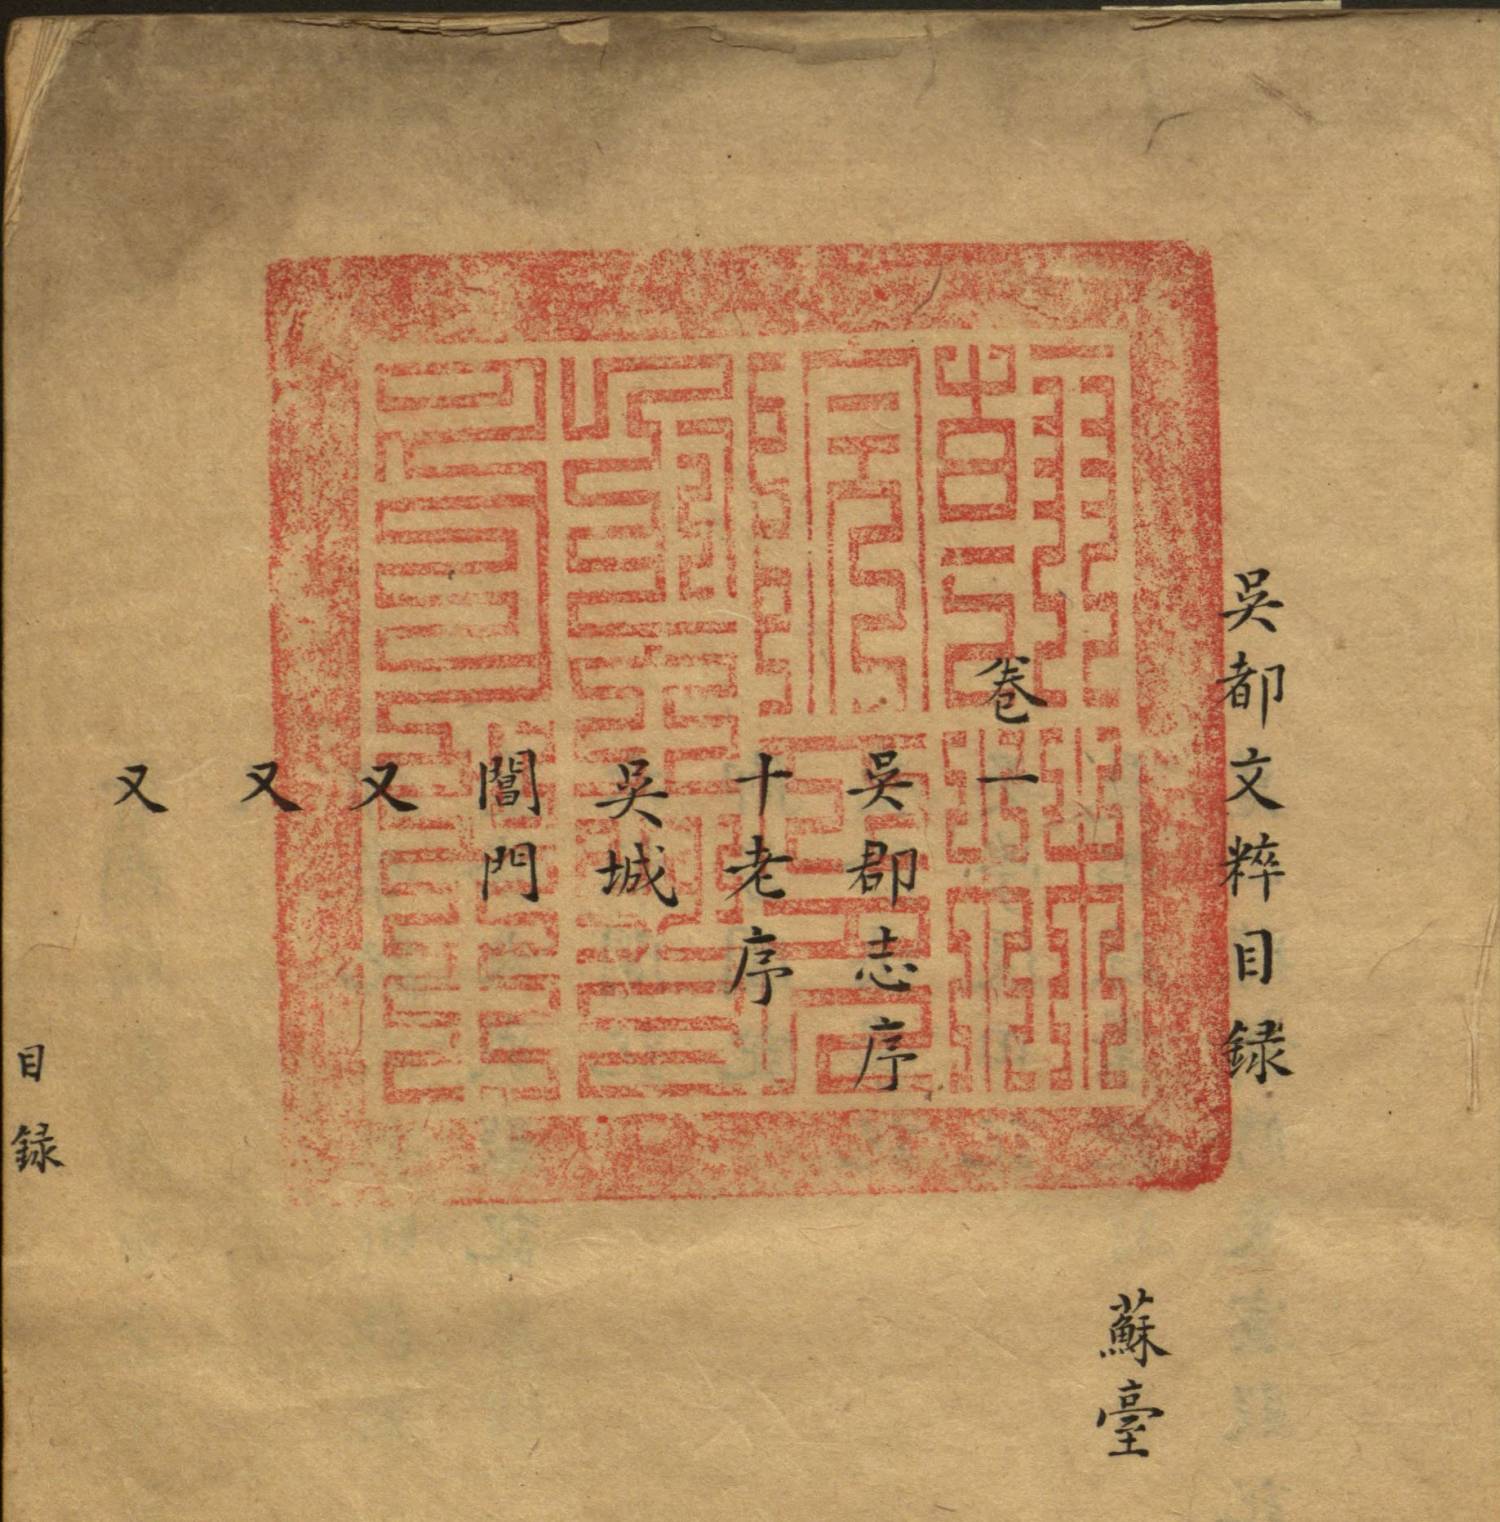 吳都文粹目録
蘇臺
卷一
吳郡志序
十老序
吳城
閶門
又
又
又
目録